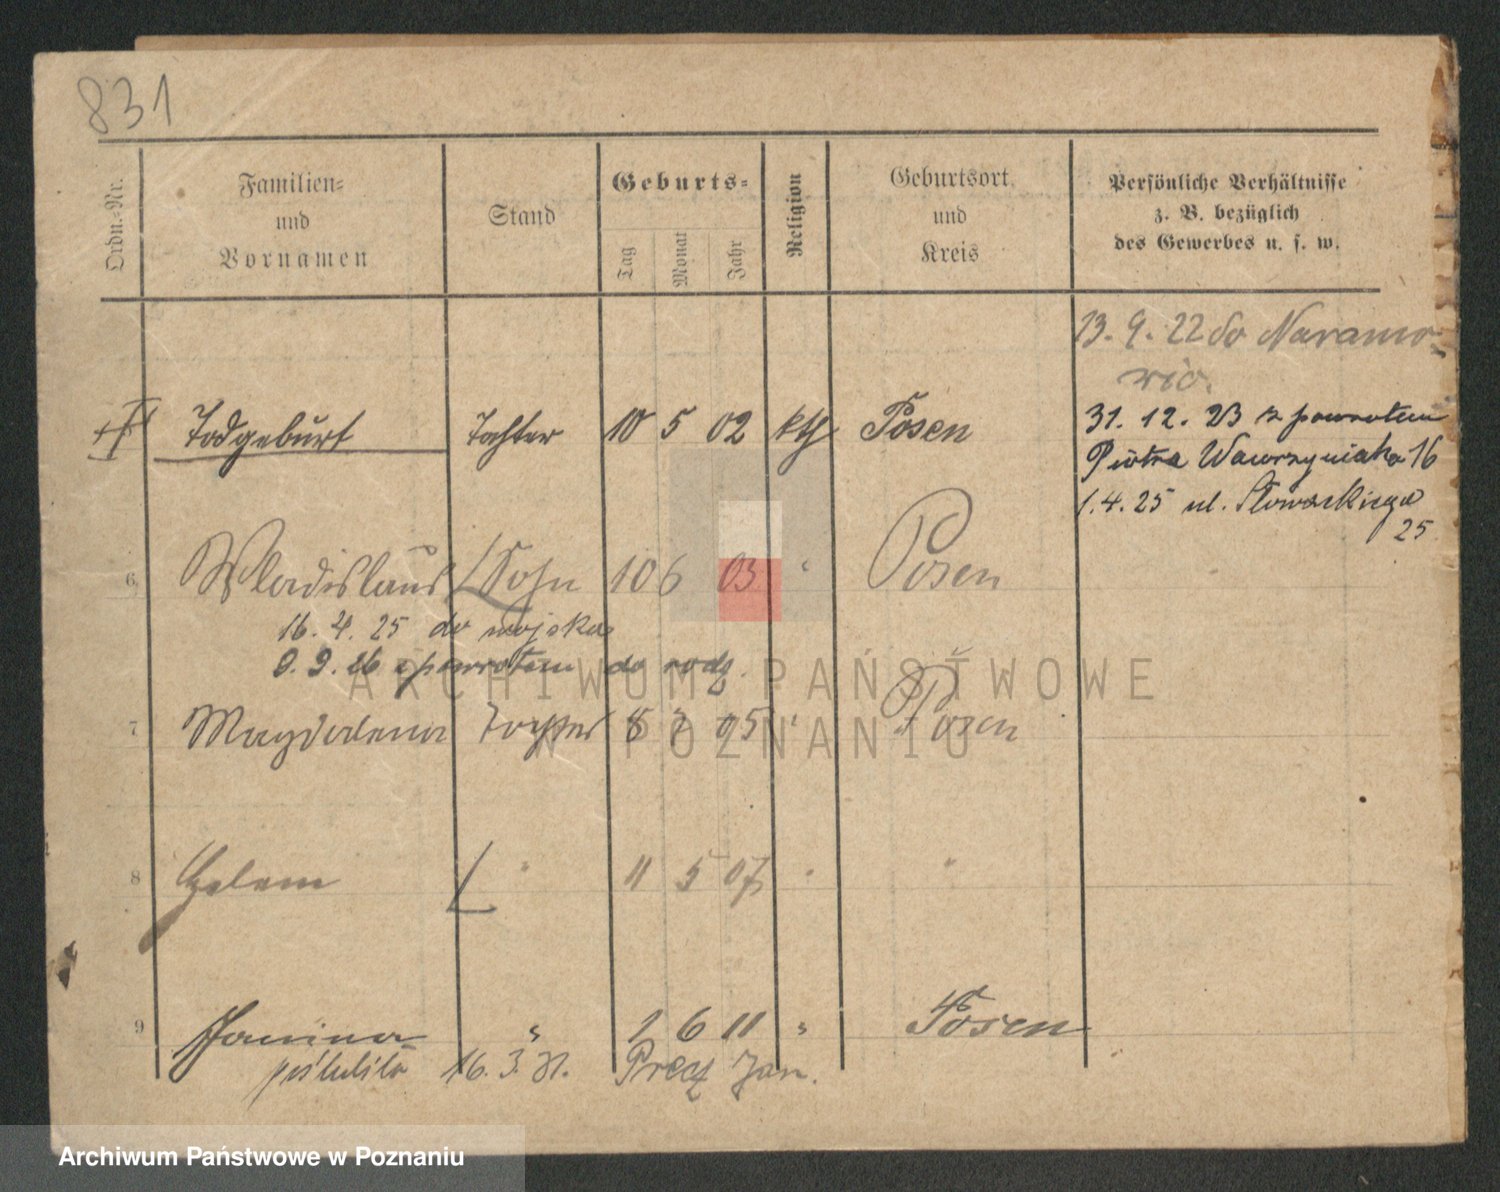 831
Ordn.-Nr.
Familien-
und
Vornamen
Stand
Geburts-
Tag
Monat
Jahr
Religion
Geburtsort
und
Kreis
Persönliche Verhältnisse
z. B. bezüglich
des Gewerbes u. s. w.
13. 9. 22 do Naramo-
wic.
Todgeburt Tochter 10 5 02 kth Posen
31. 12. 23 z powrotem
Piotra Wawrzyniaka 16
1. 4. 25 ul. Słowackiego
25
6 Wladislaus Sohn 10 6 03 " Posen
16. 4. 25 do wojska
9. 9. 26 z powrotem do rodz.
7 Magdalena Tochter 8 7 05 " Posen
8 Helene " 11 5 07 " "
9 Janina " 1 6 11 " Posen
poślubiła 16. 3. 31. Jan.
ARCHIWUM PAŃSTWOWE
W POZNANIU
Archiwum Państwowe w Poznaniu